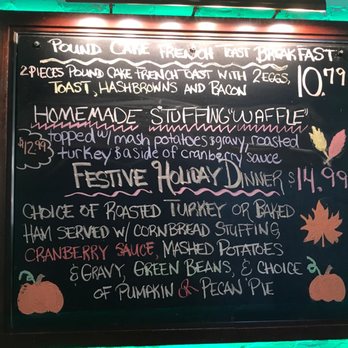 POUND CAKE FRENCH TOAST BREAKFAST
2 PIECES POUND CAKE FRENCH TOAST WITH 2 EGGS, 10.79
TOAST, HASHBROWNS AND BACON
HOMEMADE "STUFFING" WAFFLE"
$12.99 topped w/ mash potatoes & gravy, roasted
turkey & a side of cranberry sauce
FESTIVE HOLIDAY DINNER $14.99
CHOICE OF ROASTED TURKEY OR BAKED
HAM SERVED W/ CORNBREAD STUFFING,
CRANBERRY SAUCE, MASHED POTATOES
& GRAVY, GREEN BEANS, & CHOICE
OF PUMPKIN OR PECAN PIE